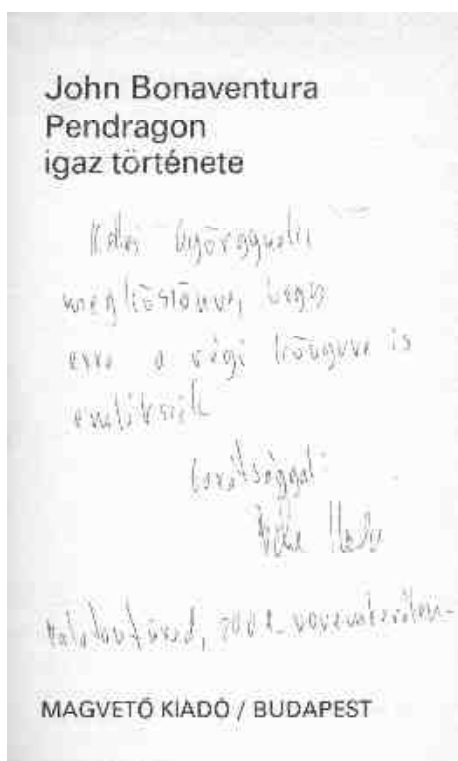 John Bonaventura
Pendragon
igaz története
Györgynek,
megköszönve, hogy
erre a régi könyvre is
emlékszik
barátsággal:
Balatonfüred, novemberében
MAGVETŐ KIADÓ / BUDAPEST